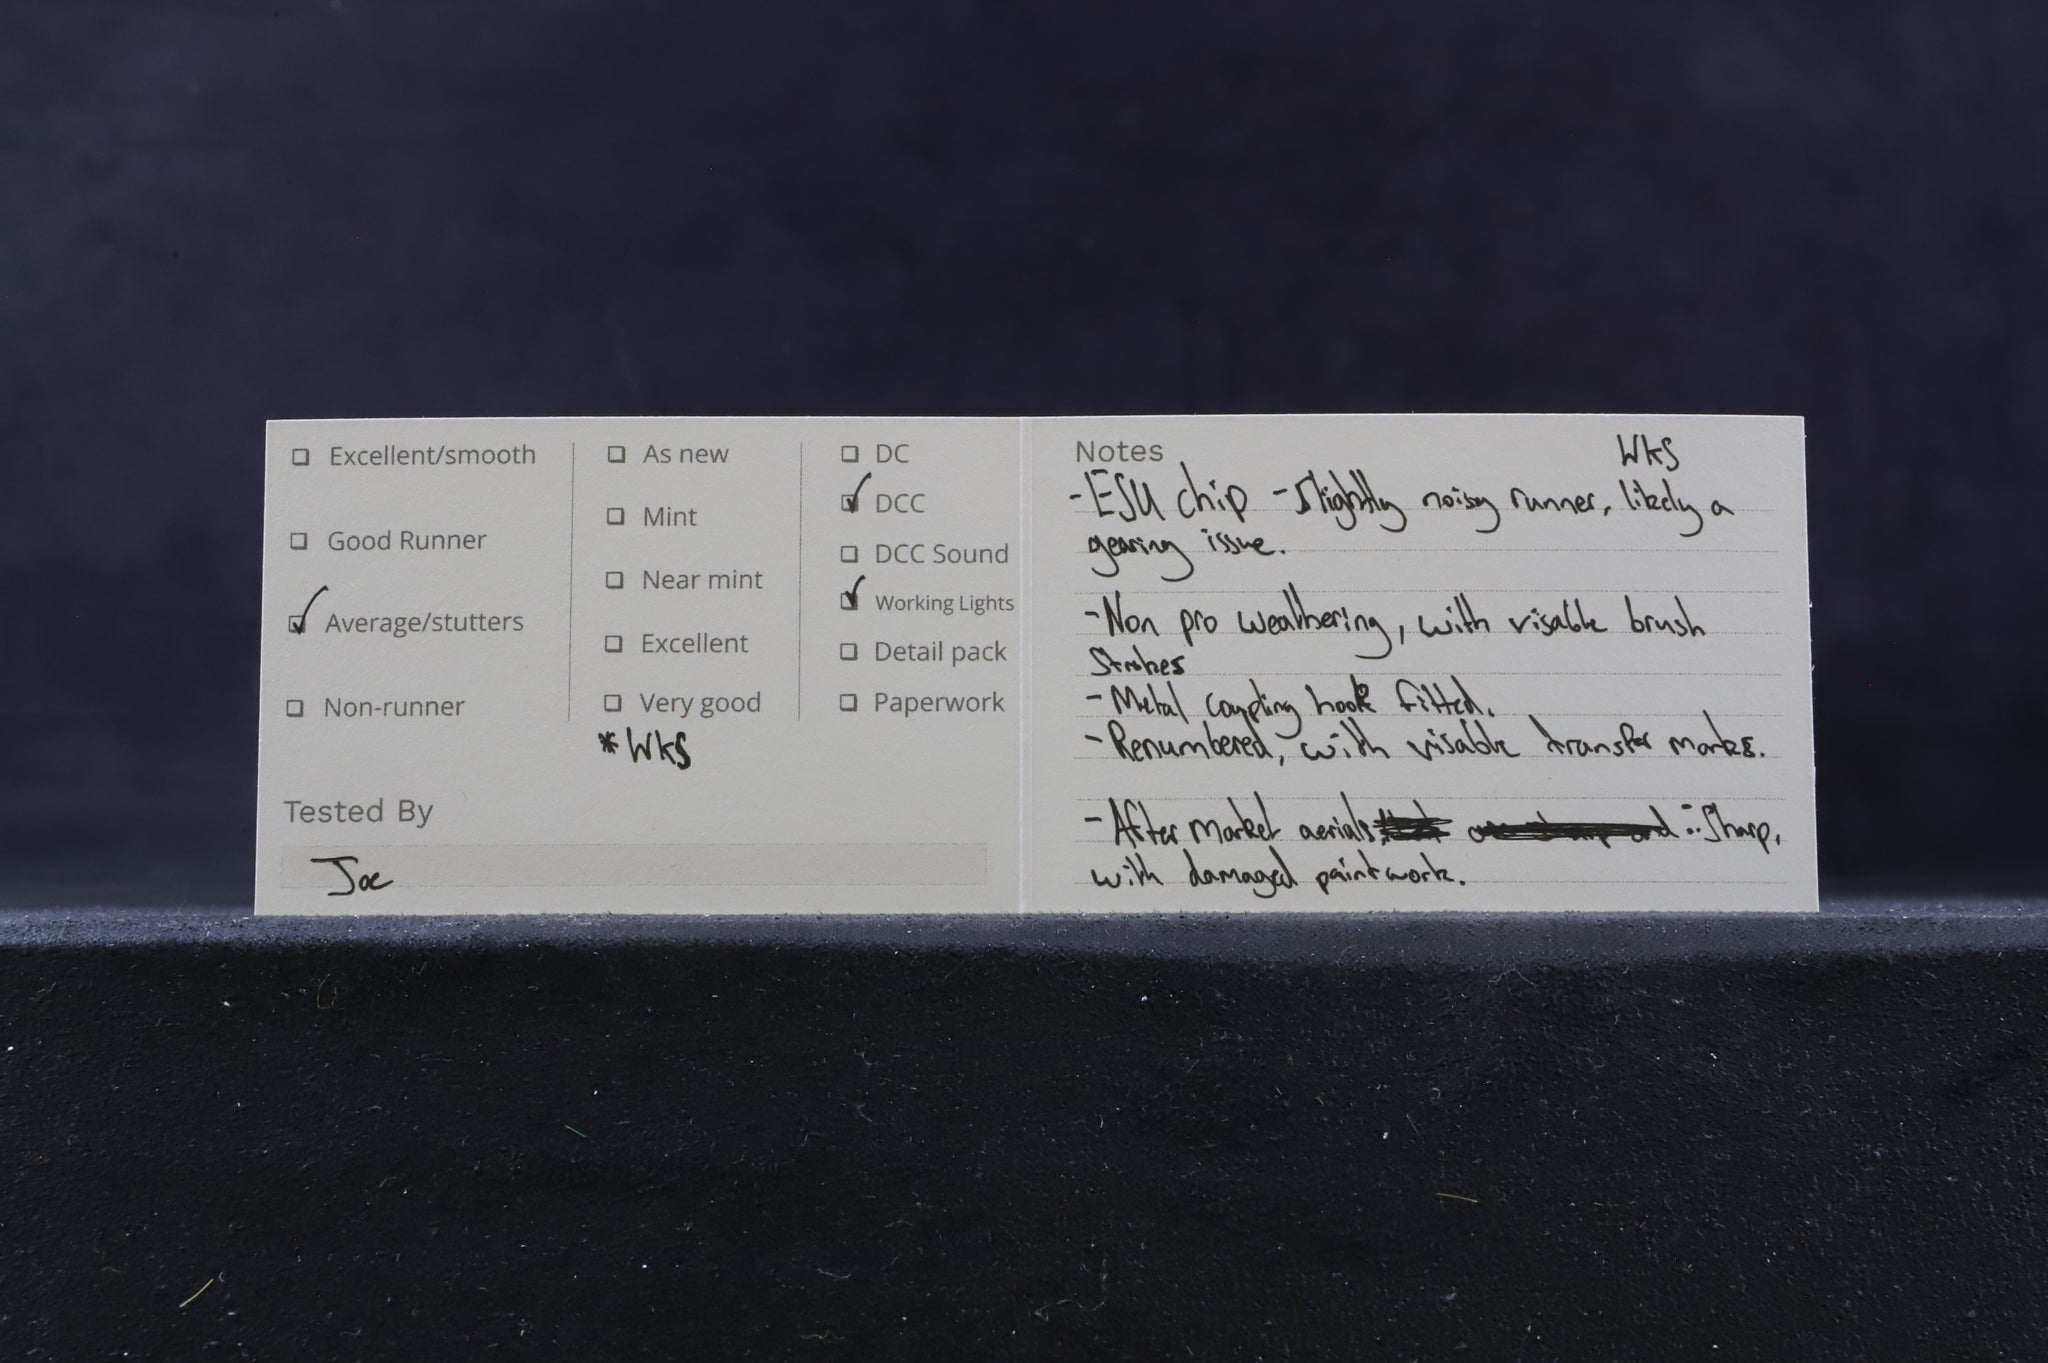 ☐ Excellent/smooth
☐ Good Runner
☑ Average/stutters
☐ Non-runner
☐ As new
☐ Mint
☐ Near mint
☐ Excellent
☐ Very good
* WkS
☐ DC
☑ DCC
☐ DCC Sound
☑ Working Lights
☐ Detail pack
☐ Paperwork
Tested By
Joe
Notes
WkS
- ESU chip - Slightly noisy runner, likely a
gearing issue.
- Non pro weathering, with visable brush
Strokes
- Metal coupling hook fitted.
- Renumbered, with visable transfer marks.
- After market aerials Sharp,
with damaged paintwork.